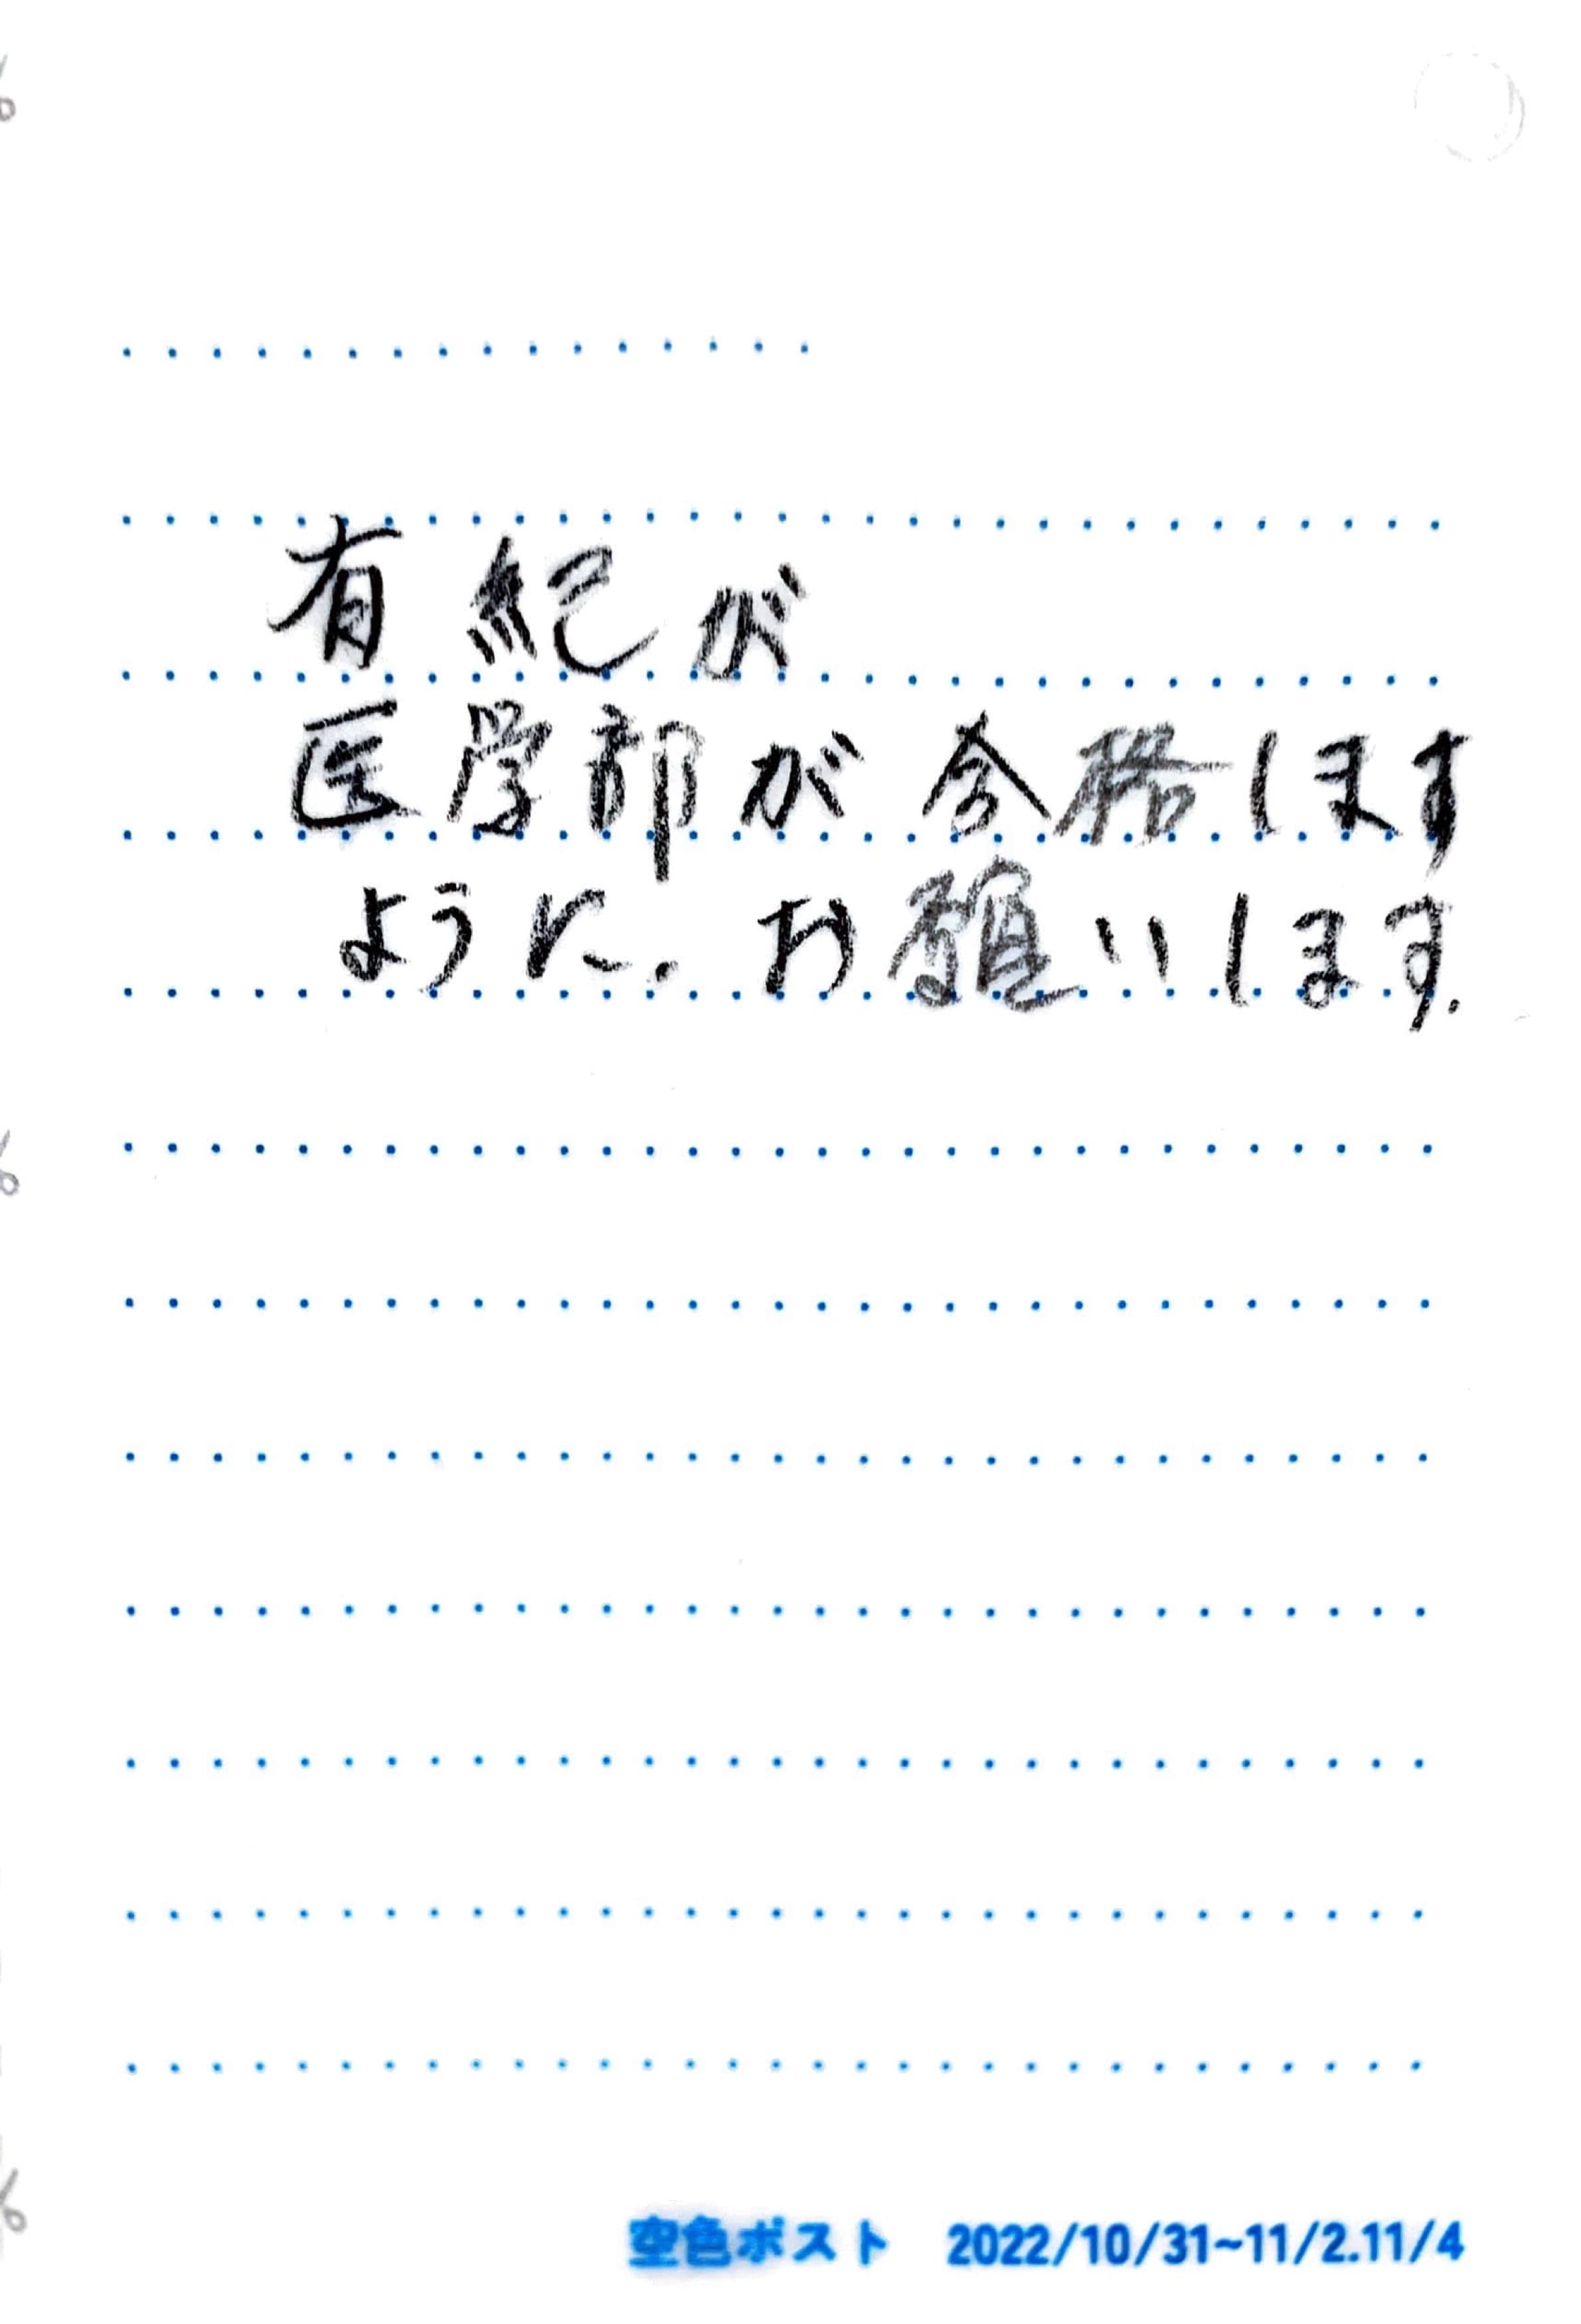 有紀が
医学部が合格します
ように.お願いします.
空色ポスト 2022/10/31~11/2.11/4